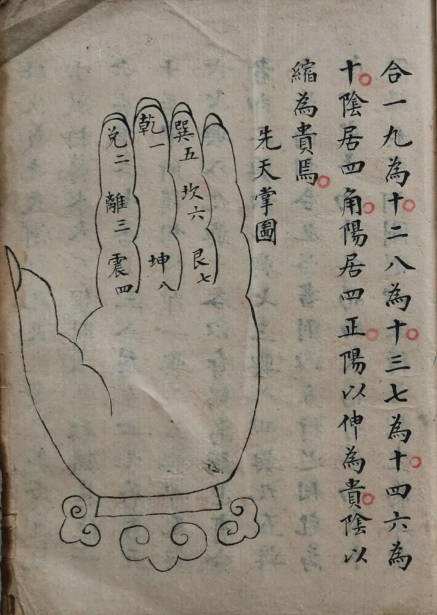 合一九為十二八為十三七為十四六為
十陰居四角陽居四正陽以伸為貴陰以
縮為貴焉
先天掌圖
巽五
坎六
艮七
乾一
坤八
兌二
離三
震四